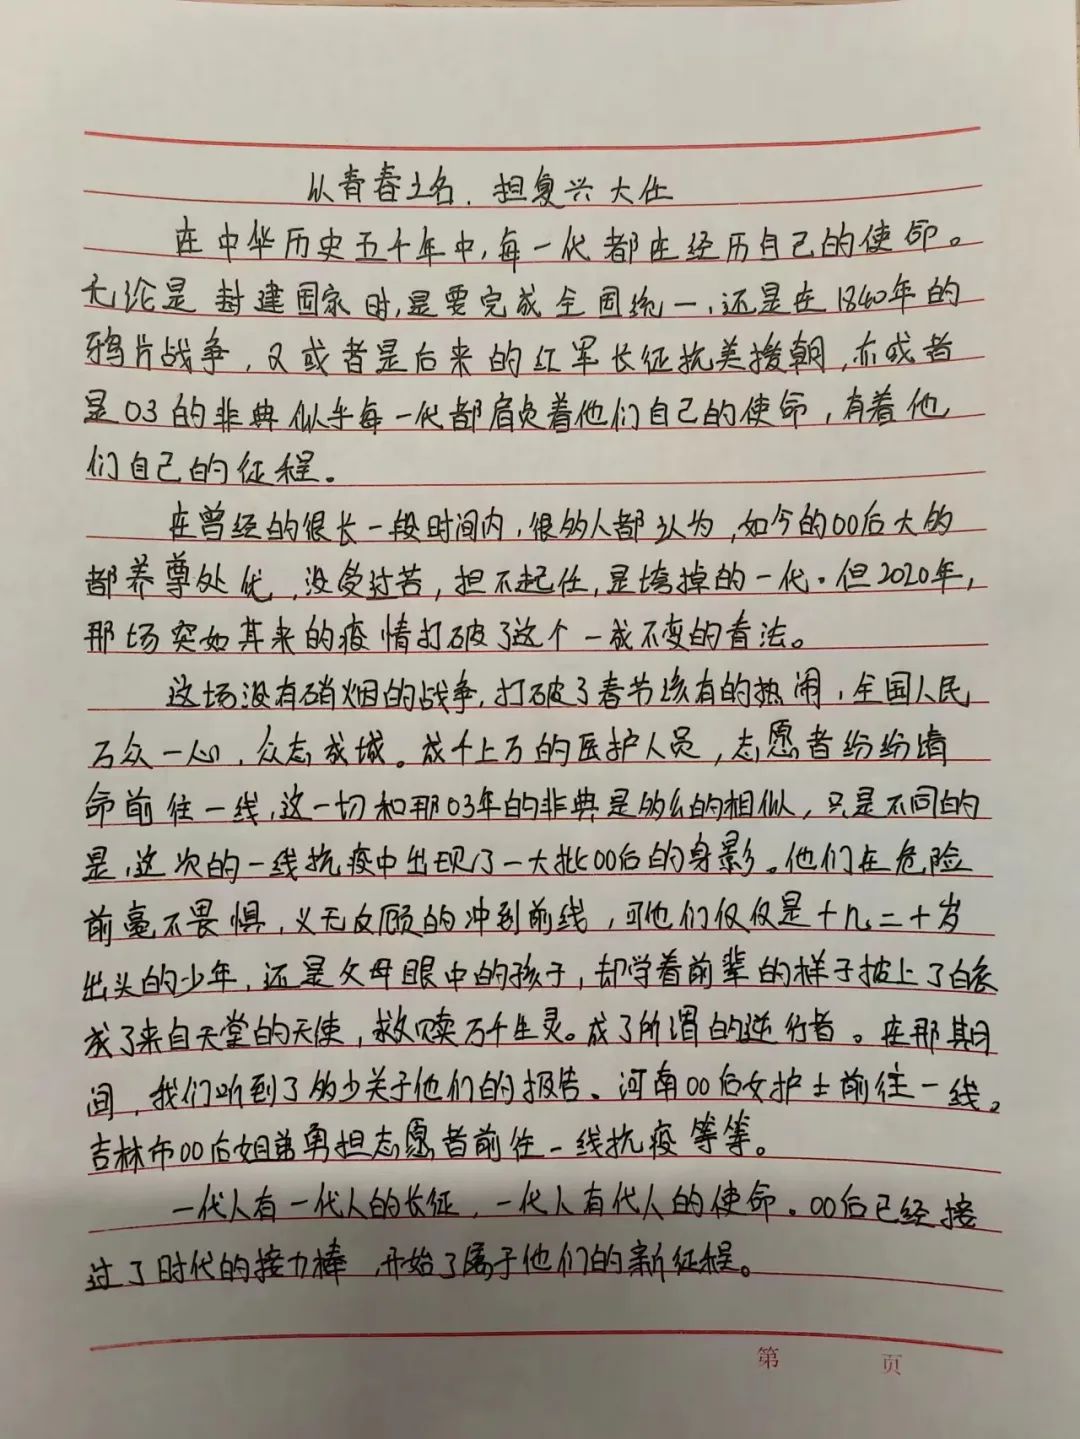 从青春之名、担复兴大任
在中华历史五千年中,每一代都在经历自己的使命。
无论是封建国家时,是要完成全国统一,还是在1840年的
鸦片战争,又或者是后来的红军长征抗美援朝,亦或者
是03的非典似乎每一代都肩负着他们自己的使命,有着他
们自己的征程。
在曾经的很长一段时间内,很多人都认为,如今的00后大的
都养尊处优,没受过苦,担不起任,是垮掉的一代。但2020年,
那场突如其来的疫情打破了这个一成不变的看法。
这场没有硝烟的战争,打破了春节该有的热闹,全国人民
万众一心,众志成城。成千上万的医护人员,志愿者纷纷请
命前往一线,这一切和那03年的非典是多么的相似,只是不同的
是,这次的一线抗疫中出现了一大批00后的身影。他们在危险
前毫不畏惧,义无反顾的冲到前线,可他们仅仅是十九、二十岁
出头的少年,还是父母眼中的孩子,却学着前辈的样子披上了白衣
成了来自天堂的天使,救赎万千生灵。成了所谓的逆行者。在那期
间,我们听到了多少关于他们的报告、河南00后女护士前往一线。
吉林市00后姐弟勇担志愿者前往一线抗疫等等。
一代人有一代人的长征,一代人有代人的使命。00后已经接
过了时代的接力棒,开始了属于他们的新征程。
第 页